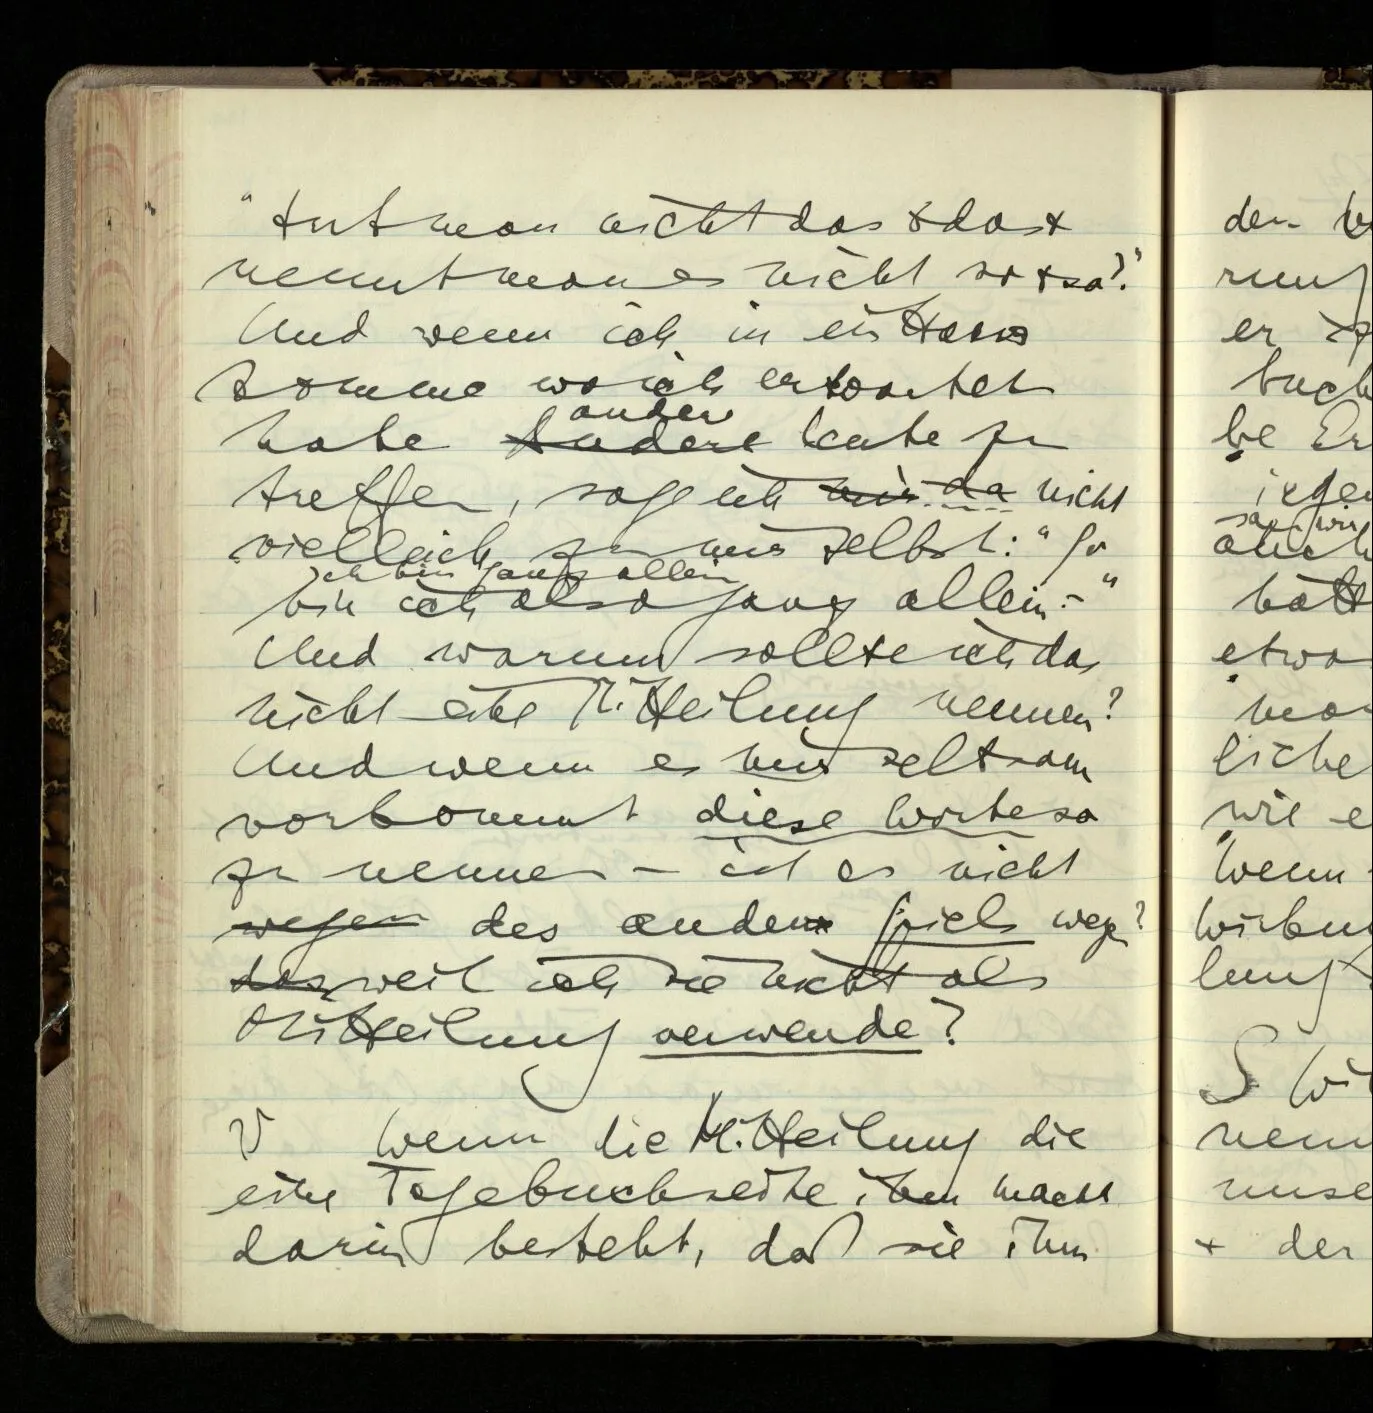 "tut man nicht das + das +
nennt man es nicht so + so?"
Und wenn ich in ein Haus
komme wo ich erwartet
andere
habe andere Leute zu
treffen, sage ich mir da nicht
vielleicht zu mir selbst: "Ja
ich bin ganz allein
bin ich also ganz allein."
Und warum sollte ich das
nicht eine Mitteilung nennen?
Und wenn es mir seltsam
vorkommt diese Worte so
zu nennen – ist es nicht
wegen des andern Spiels wegen?
weil ich sie nicht als
Mitteilung verwende?
V Wenn die Mitteilung die
eine Tagebuchseite ihm macht
darin besteht, daß sie ihm
den
er
wie e
wenn
S
+ der